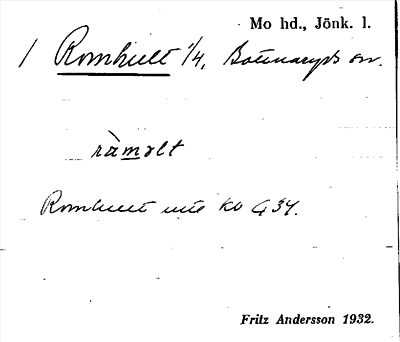 Mo hd., Jönk. l.
/ Romhult 1/4, Bottnaryds sn.
ràmɔlt
Romhult
Fritz Andersson 1932.